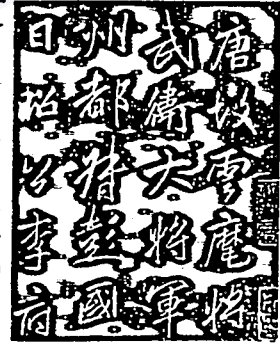 唐故雲麾將
武衛大將軍
州都督彭國
曰昭公李府